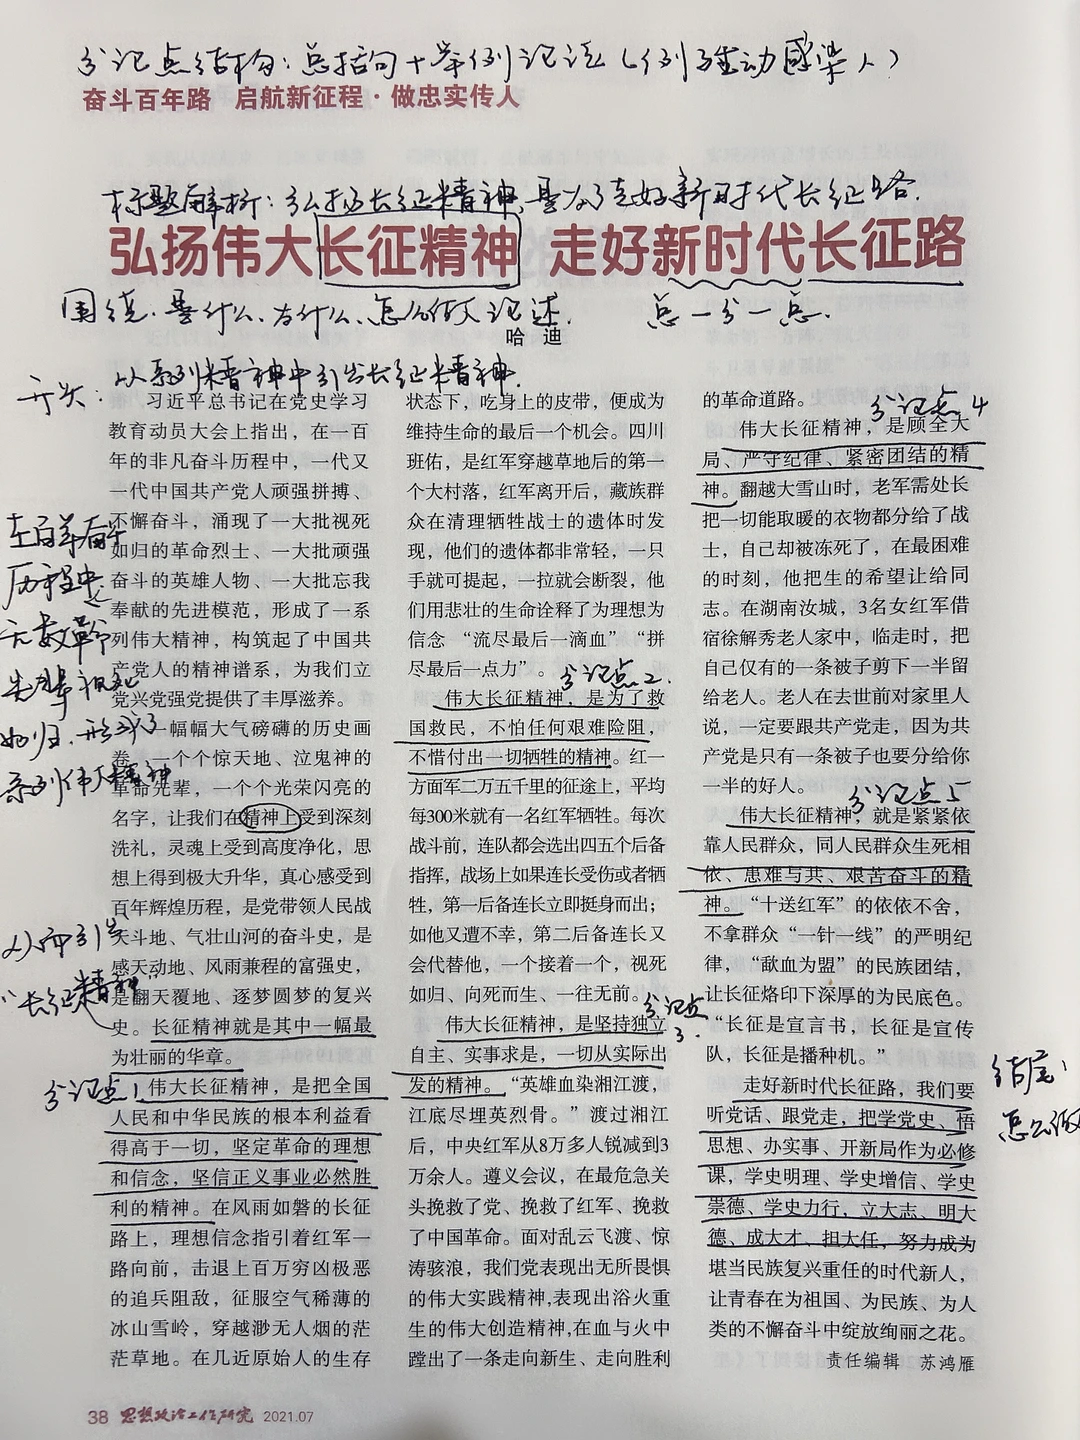 分记点结构：总括句＋举例记法（例子生动感染人）
奋斗百年路 启航新征程·做忠实传人
标题解析：弘扬长征精神，是为了走好新时代长征路．
弘扬伟大长征精神 走好新时代长征路
围绕．是什么、为什么、怎么做大论述．
总一分一总．
哈 迪
开头：从系列精神中引出长征精神．
习近平总书记在党史学习
教育动员大会上指出，在一百
年的非凡奋斗历程中，一代又
一代中国共产党人顽强拼搏、
不懈奋斗，涌现了一大批视死
如归的革命烈士、一大批顽强
奋斗的英雄人物、一大批忘我
奉献的先进模范，形成了一系
列伟大精神，构筑起了中国共
产党人的精神谱系，为我们立
党兴党强党提供了丰厚滋养。
在百年奋斗
历程中
无数革命
先辈视死
如归．形成了
系列伟大精神
一幅幅大气磅礴的历史画
卷，一个个惊天地、泣鬼神的
革命先辈，一个个光荣闪亮的
名字，让我们在精神上受到深刻
洗礼，灵魂上受到高度净化，思
想上得到极大升华，真心感受到
百年辉煌历程，是党带领人民战
天斗地、气壮山河的奋斗史，是
感天动地、风雨兼程的富强史，
是翻天覆地、逐梦圆梦的复兴
史。长征精神就是其中一幅最
为壮丽的华章。
从而引出
“长征精神”
分记点1
伟大长征精神，是把全国
人民和中华民族的根本利益看
得高于一切，坚定革命的理想
和信念，坚信正义事业必然胜
利的精神。在风雨如磐的长征
路上，理想信念指引着红军一
路向前，击退上百万穷凶极恶
的追兵阻敌，征服空气稀薄的
冰山雪岭，穿越渺无人烟的茫
茫草地。在几近原始人的生存
状态下，吃身上的皮带，便成为
维持生命的最后一个机会。四川
班佑，是红军穿越草地后的第一
个大村落，红军离开后，藏族群
众在清理牺牲战士的遗体时发
现，他们的遗体都非常轻，一只
手就可提起，一拉就会断裂，他
们用悲壮的生命诠释了为理想为
信念 “流尽最后一滴血”“拼
尽最后一点力”。
分记点2．
伟大长征精神，是为了救
国救民，不怕任何艰难险阻，
不惜付出一切牺牲的精神。红一
方面军二万五千里的征途上，平均
每300米就有一名红军牺牲。每次
战斗前，连队都会选出四五个后备
指挥，战场上如果连长受伤或者牺
牲，第一后备连长立即挺身而出；
如他又遭不幸，第二后备连长又
会代替他，一个接着一个，视死
如归、向死而生、一往无前。
分记点
3．
伟大长征精神，是坚持独立
自主、实事求是，一切从实际出
发的精神。“英雄血染湘江渡，
江底尽埋英烈骨。”渡过湘江
后，中央红军从8万多人锐减到3
万余人。遵义会议，在最危急关
头挽救了党、挽救了红军、挽救
了中国革命。面对乱云飞渡、惊
涛骇浪，我们党表现出无所畏惧
的伟大实践精神,表现出浴火重
生的伟大创造精神,在血与火中
蹚出了一条走向新生、走向胜利
的革命道路。
分记点4
伟大长征精神，是顾全大
局、严守纪律、紧密团结的精
神。翻越大雪山时，老军需处长
把一切能取暖的衣物都分给了战
士，自己却被冻死了，在最困难
的时刻，他把生的希望让给同
志。在湖南汝城，3名女红军借
宿徐解秀老人家中，临走时，把
自己仅有的一条被子剪下一半留
给老人。老人在去世前对家里人
说，一定要跟共产党走，因为共
产党是只有一条被子也要分给你
一半的好人。
分记点5
伟大长征精神，就是紧紧依
靠人民群众，同人民群众生死相
依、患难与共、艰苦奋斗的精
神。“十送红军”的依依不舍，
不拿群众“一针一线”的严明纪
律，“歃血为盟”的民族团结，
让长征烙印下深厚的为民底色。
“长征是宣言书，长征是宣传
队，长征是播种机。”
结尾：
怎么做
走好新时代长征路，我们要
听党话、跟党走，把学党史、悟
思想、办实事、开新局作为必修
课，学史明理、学史增信、学史
崇德、学史力行，立大志、明大
德、成大才、担大任，努力成为
堪当民族复兴重任的时代新人，
让青春在为祖国、为民族、为人
类的不懈奋斗中绽放绚丽之花。
责任编辑 苏鸿雁
38 思想政治工作研究 2021.07